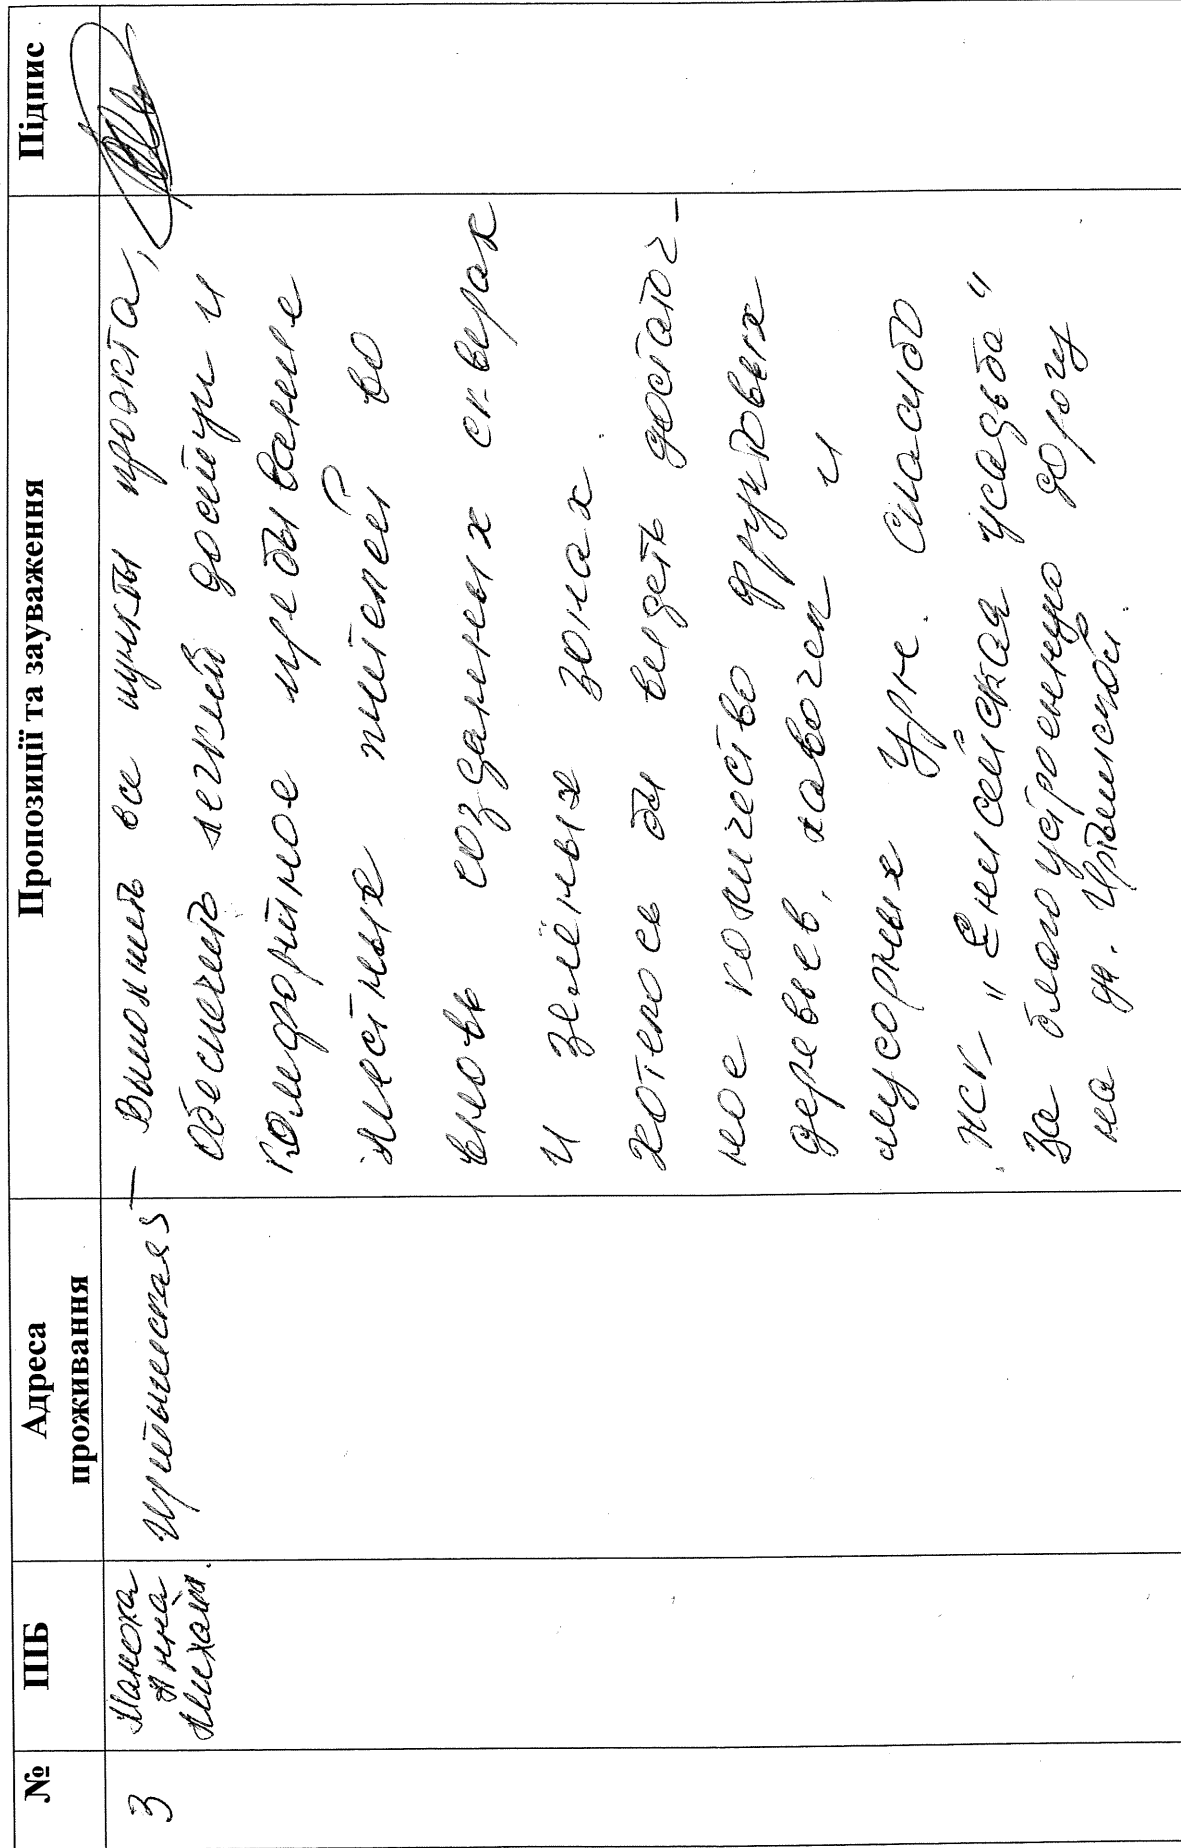 №
ПІБ
Адреса
проживання
Пропозиції та зауваження
Підпис
3
Анна
Михайл.
Иртышская 5
— Выполнить все пункты проэкта,
обеспечить легкий доступ и
комфортное пребывание
местных жителей во
вновь созданных скверах
и зелёных зонах.
хотелось бы видеть достаточ-
ное количество фруктовых
деревьев, лавочек и
мусорных урн. Спасибо
ЖК „Енисейская усадьба"
за благоустроенную дорогу
на ул. Иртышской.